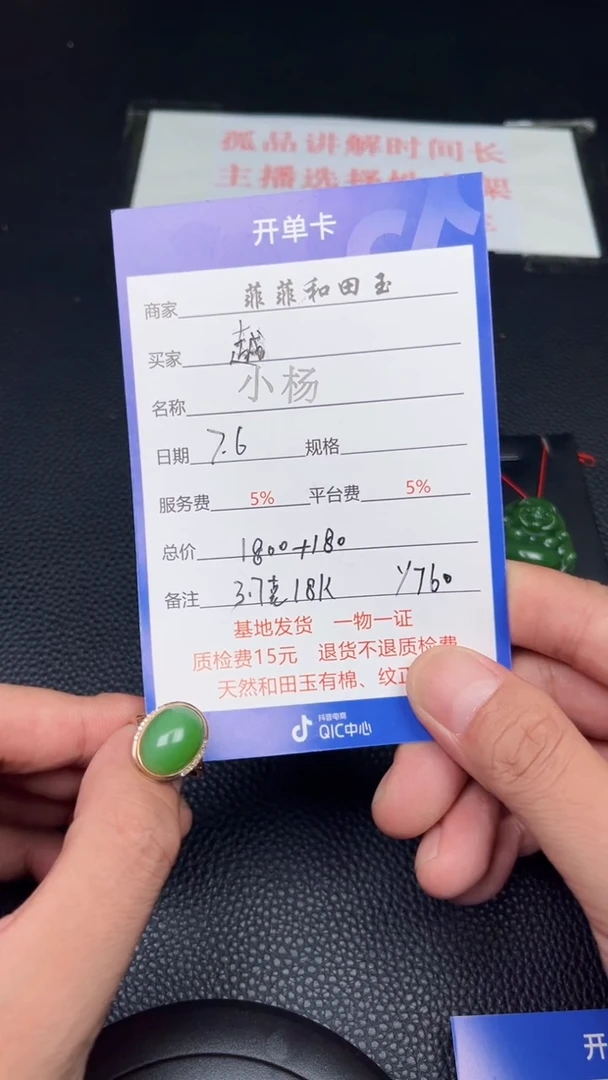 孤品讲解时间长
主播选择性上架
开单卡
商家 菲菲和田玉
买家 越
小杨
名称
日期 7.6 规格
服务费 5% 平台费 5%
总价 1800+180
备注 3.7克18K 1/760
基地发货 一物一证
质检费15元 退货不退质检费
天然和田玉有棉、纹正
抖音电商
QIC中心
开